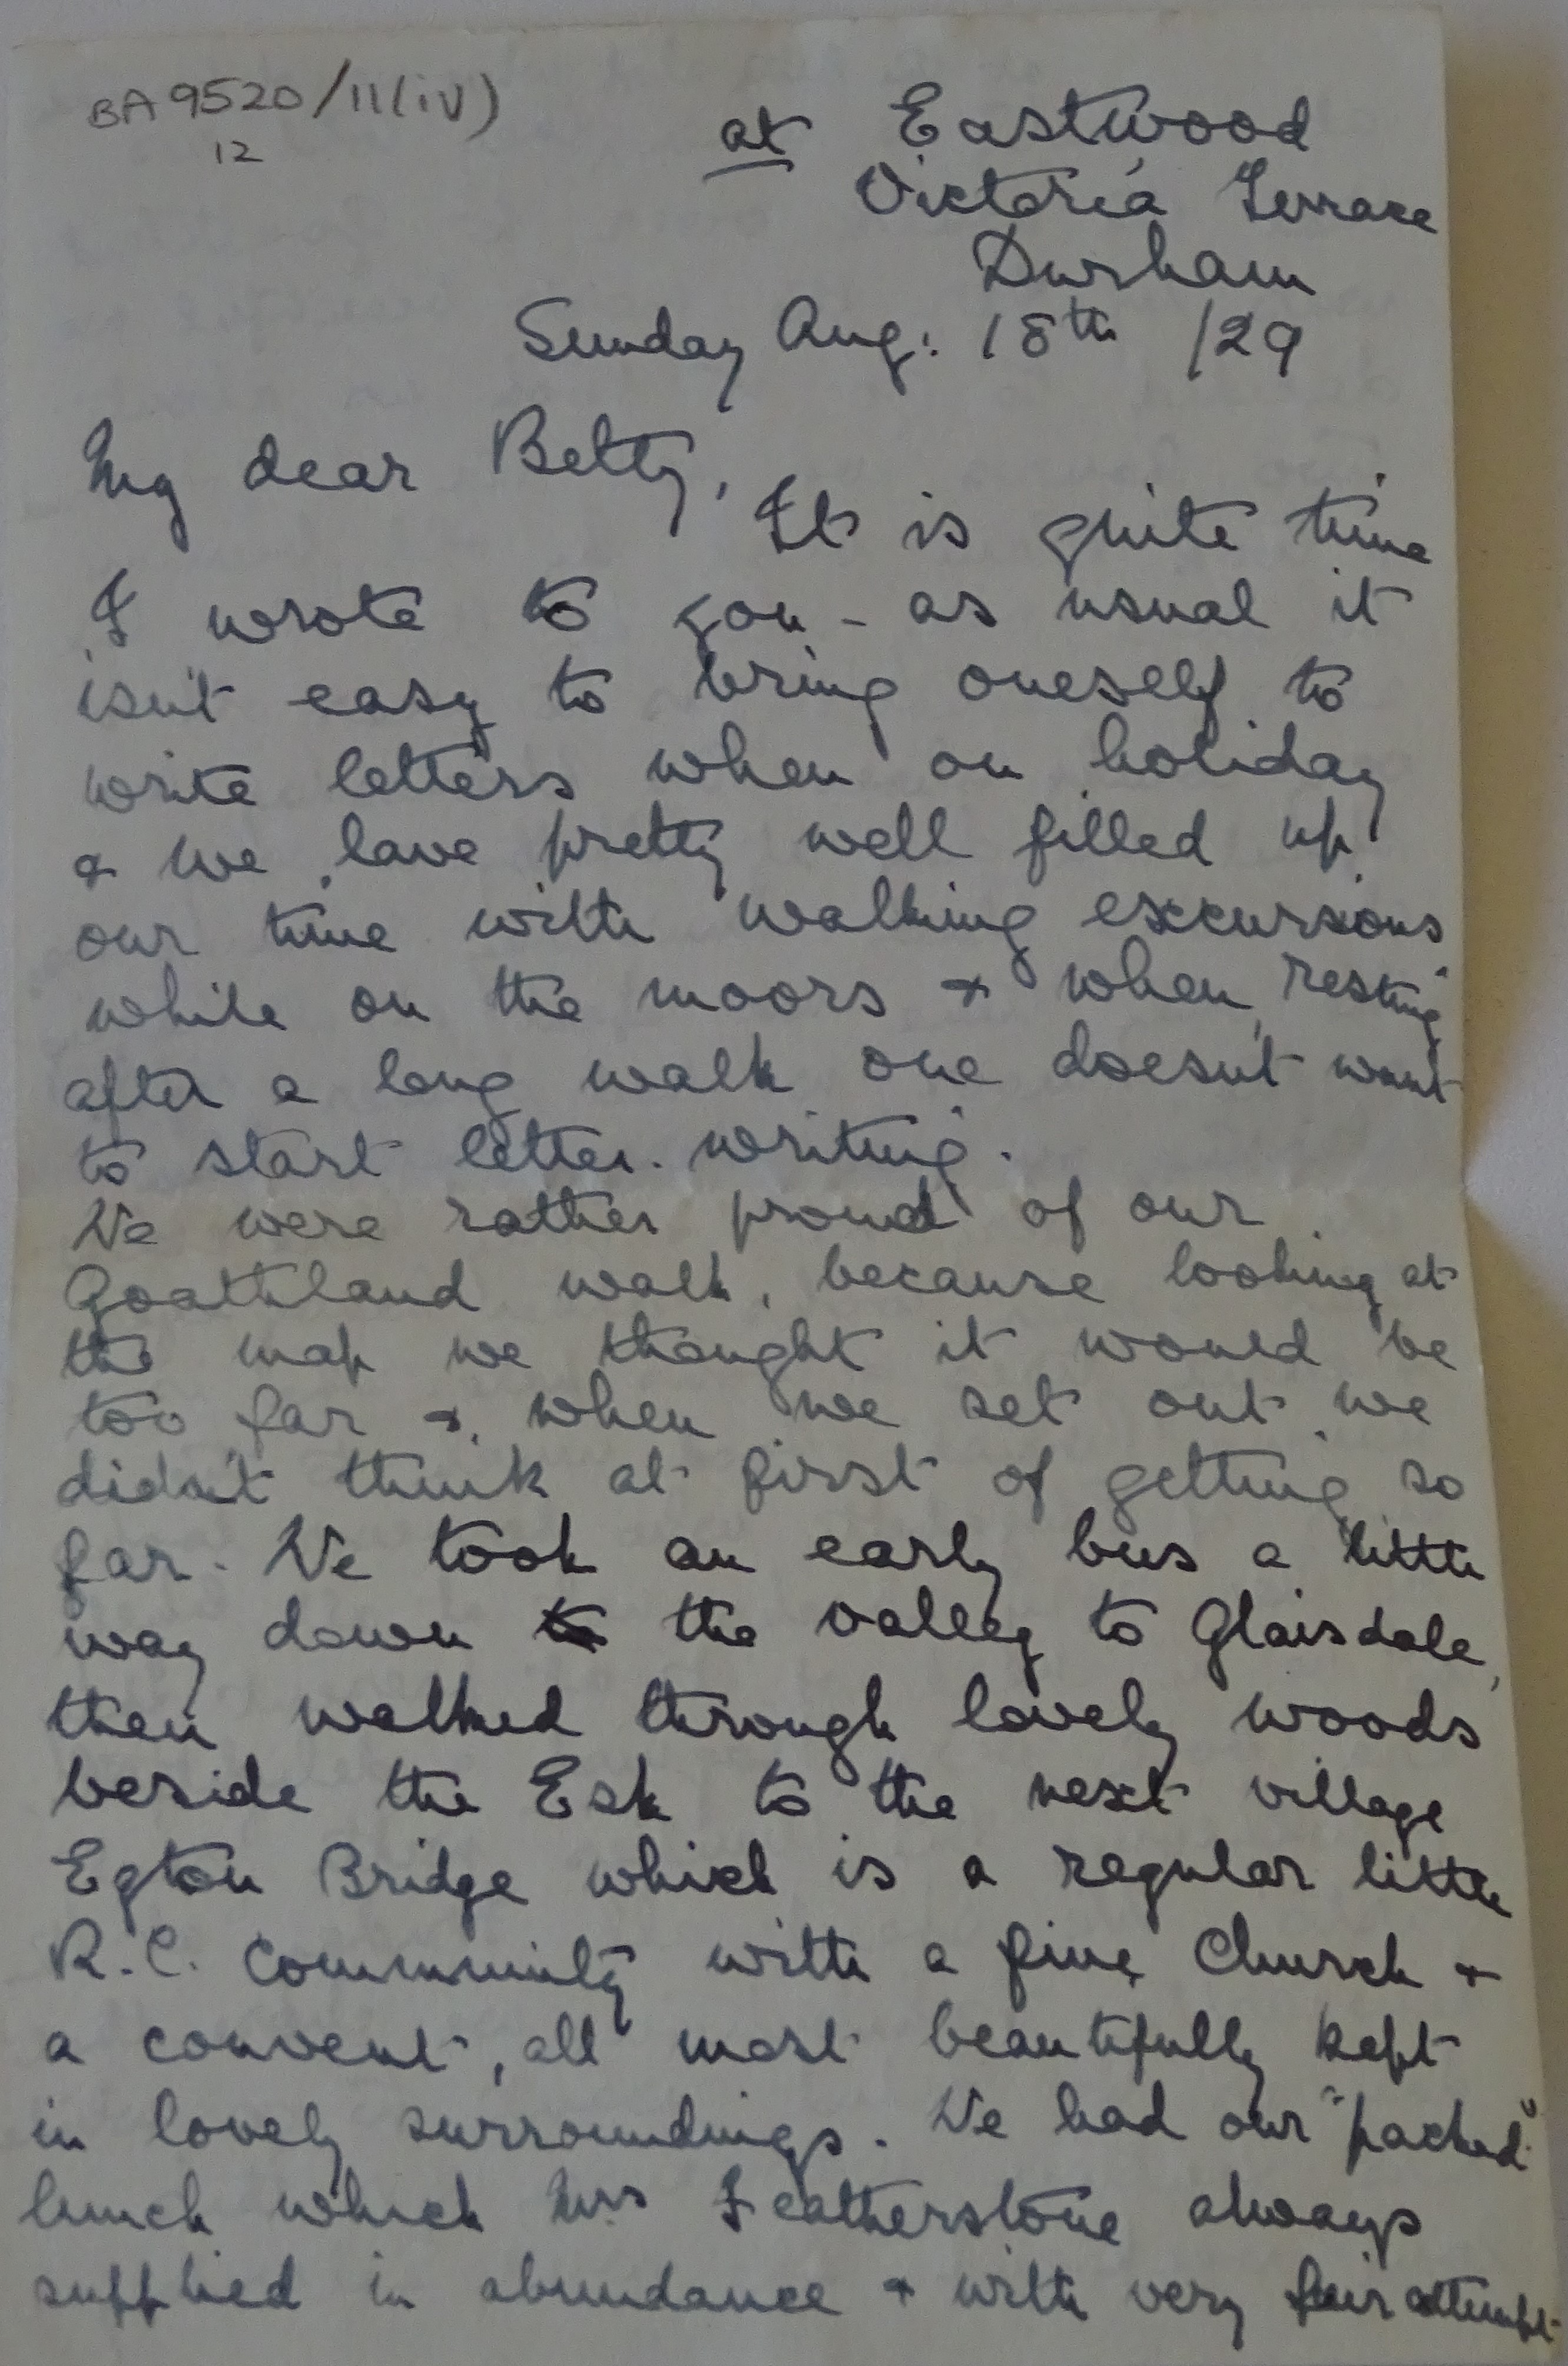 BA 9520/11(iv)
12
at Eastwood
Victoria Terrace
Durham
Sunday Aug: 18th /29
My dear Betty,
It is quite time
I wrote to you - as usual it
isn't easy to bring oneself to
write letters when on holiday
& we have pretty well filled up
our time with walking excursions
while on the moors & when resting
after a long walk one doesn't want
to start letter-writing.
We were rather proud of our
Goathland walk, because looking at
the map we thought it would be
too far & when we set out we
didn't think at first of getting so
far. We took an early bus a little
way down the valley to Glaisdale,
then walked through lovely woods
beside the Esk to the next village
Egton Bridge which is a regular little
R.C. Community with a fine Church &
a convent, all most beautifully kept
in lovely surroundings. We had our "packed"
lunch which Mrs Featherstone always
supplied in abundance & with very fair attempt